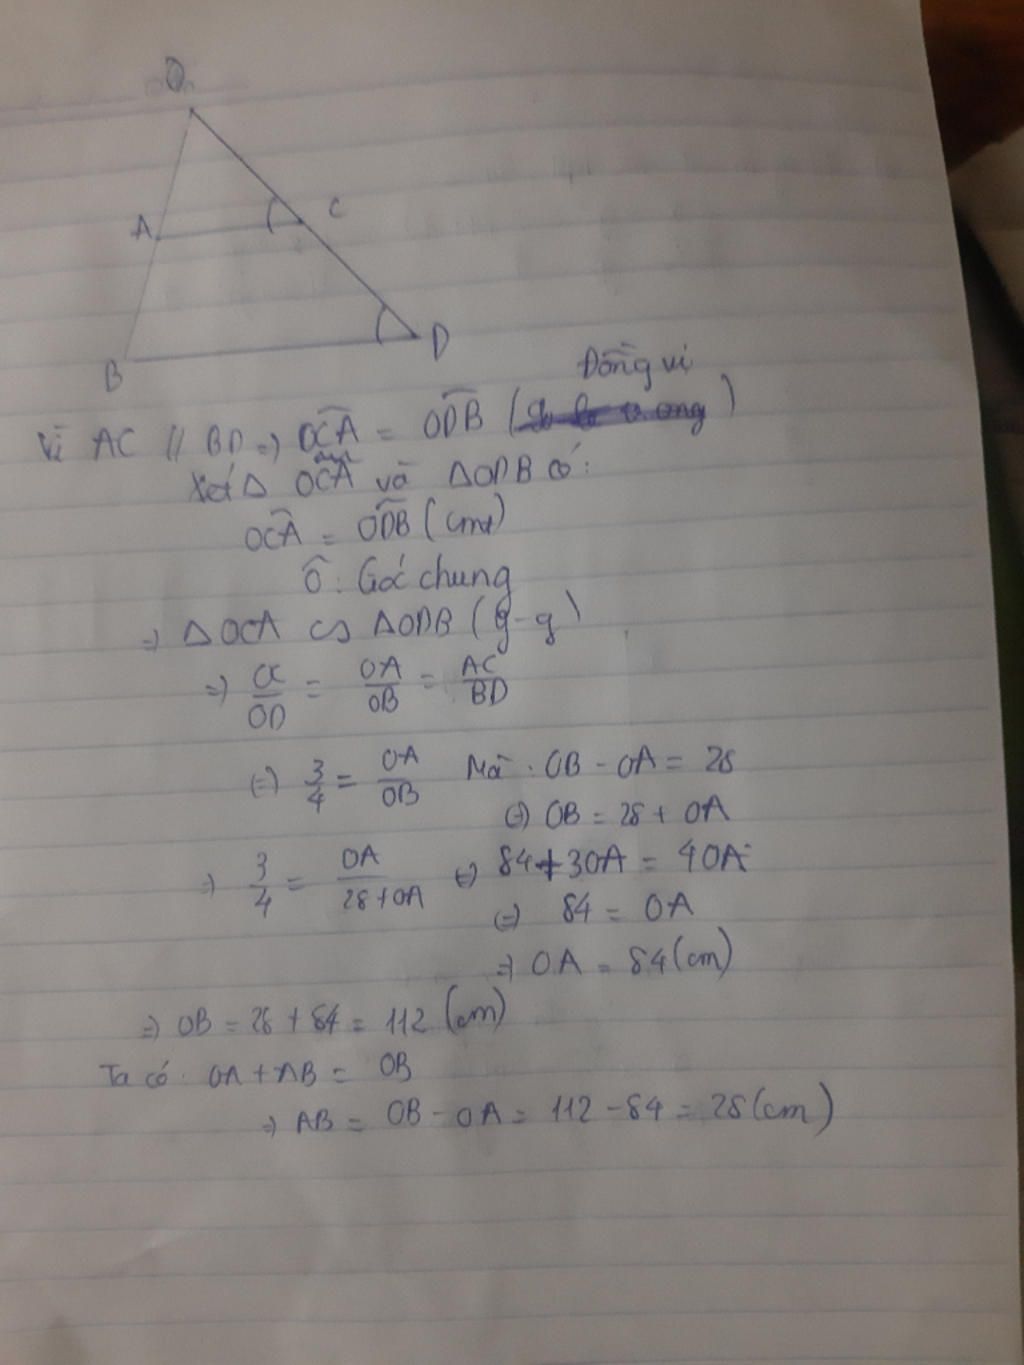 O
A
C
B
D
Đồng vị
Vì AC // BD => OCA = ODB ( )
Xét Δ OCA và ΔODB có:
OCA = ODB (cmt)
Ô: Góc chung
=> ΔOCA ∽ ΔODB (g-g)
=> OC/OD = OA/OB = AC/BD
(=) 3/4 = OA/OB Mà: OB - OA = 28
(=) OB = 28 + OA
=> 3/4 = OA/28+OA (=) 84+3OA = 4OA
(=) 84 = OA
=> OA = 84 (cm)
=> OB = 28 + 84 = 112 (cm)
Ta có: OA + AB = OB
=> AB = OB - OA = 112 - 84 = 28 (cm)